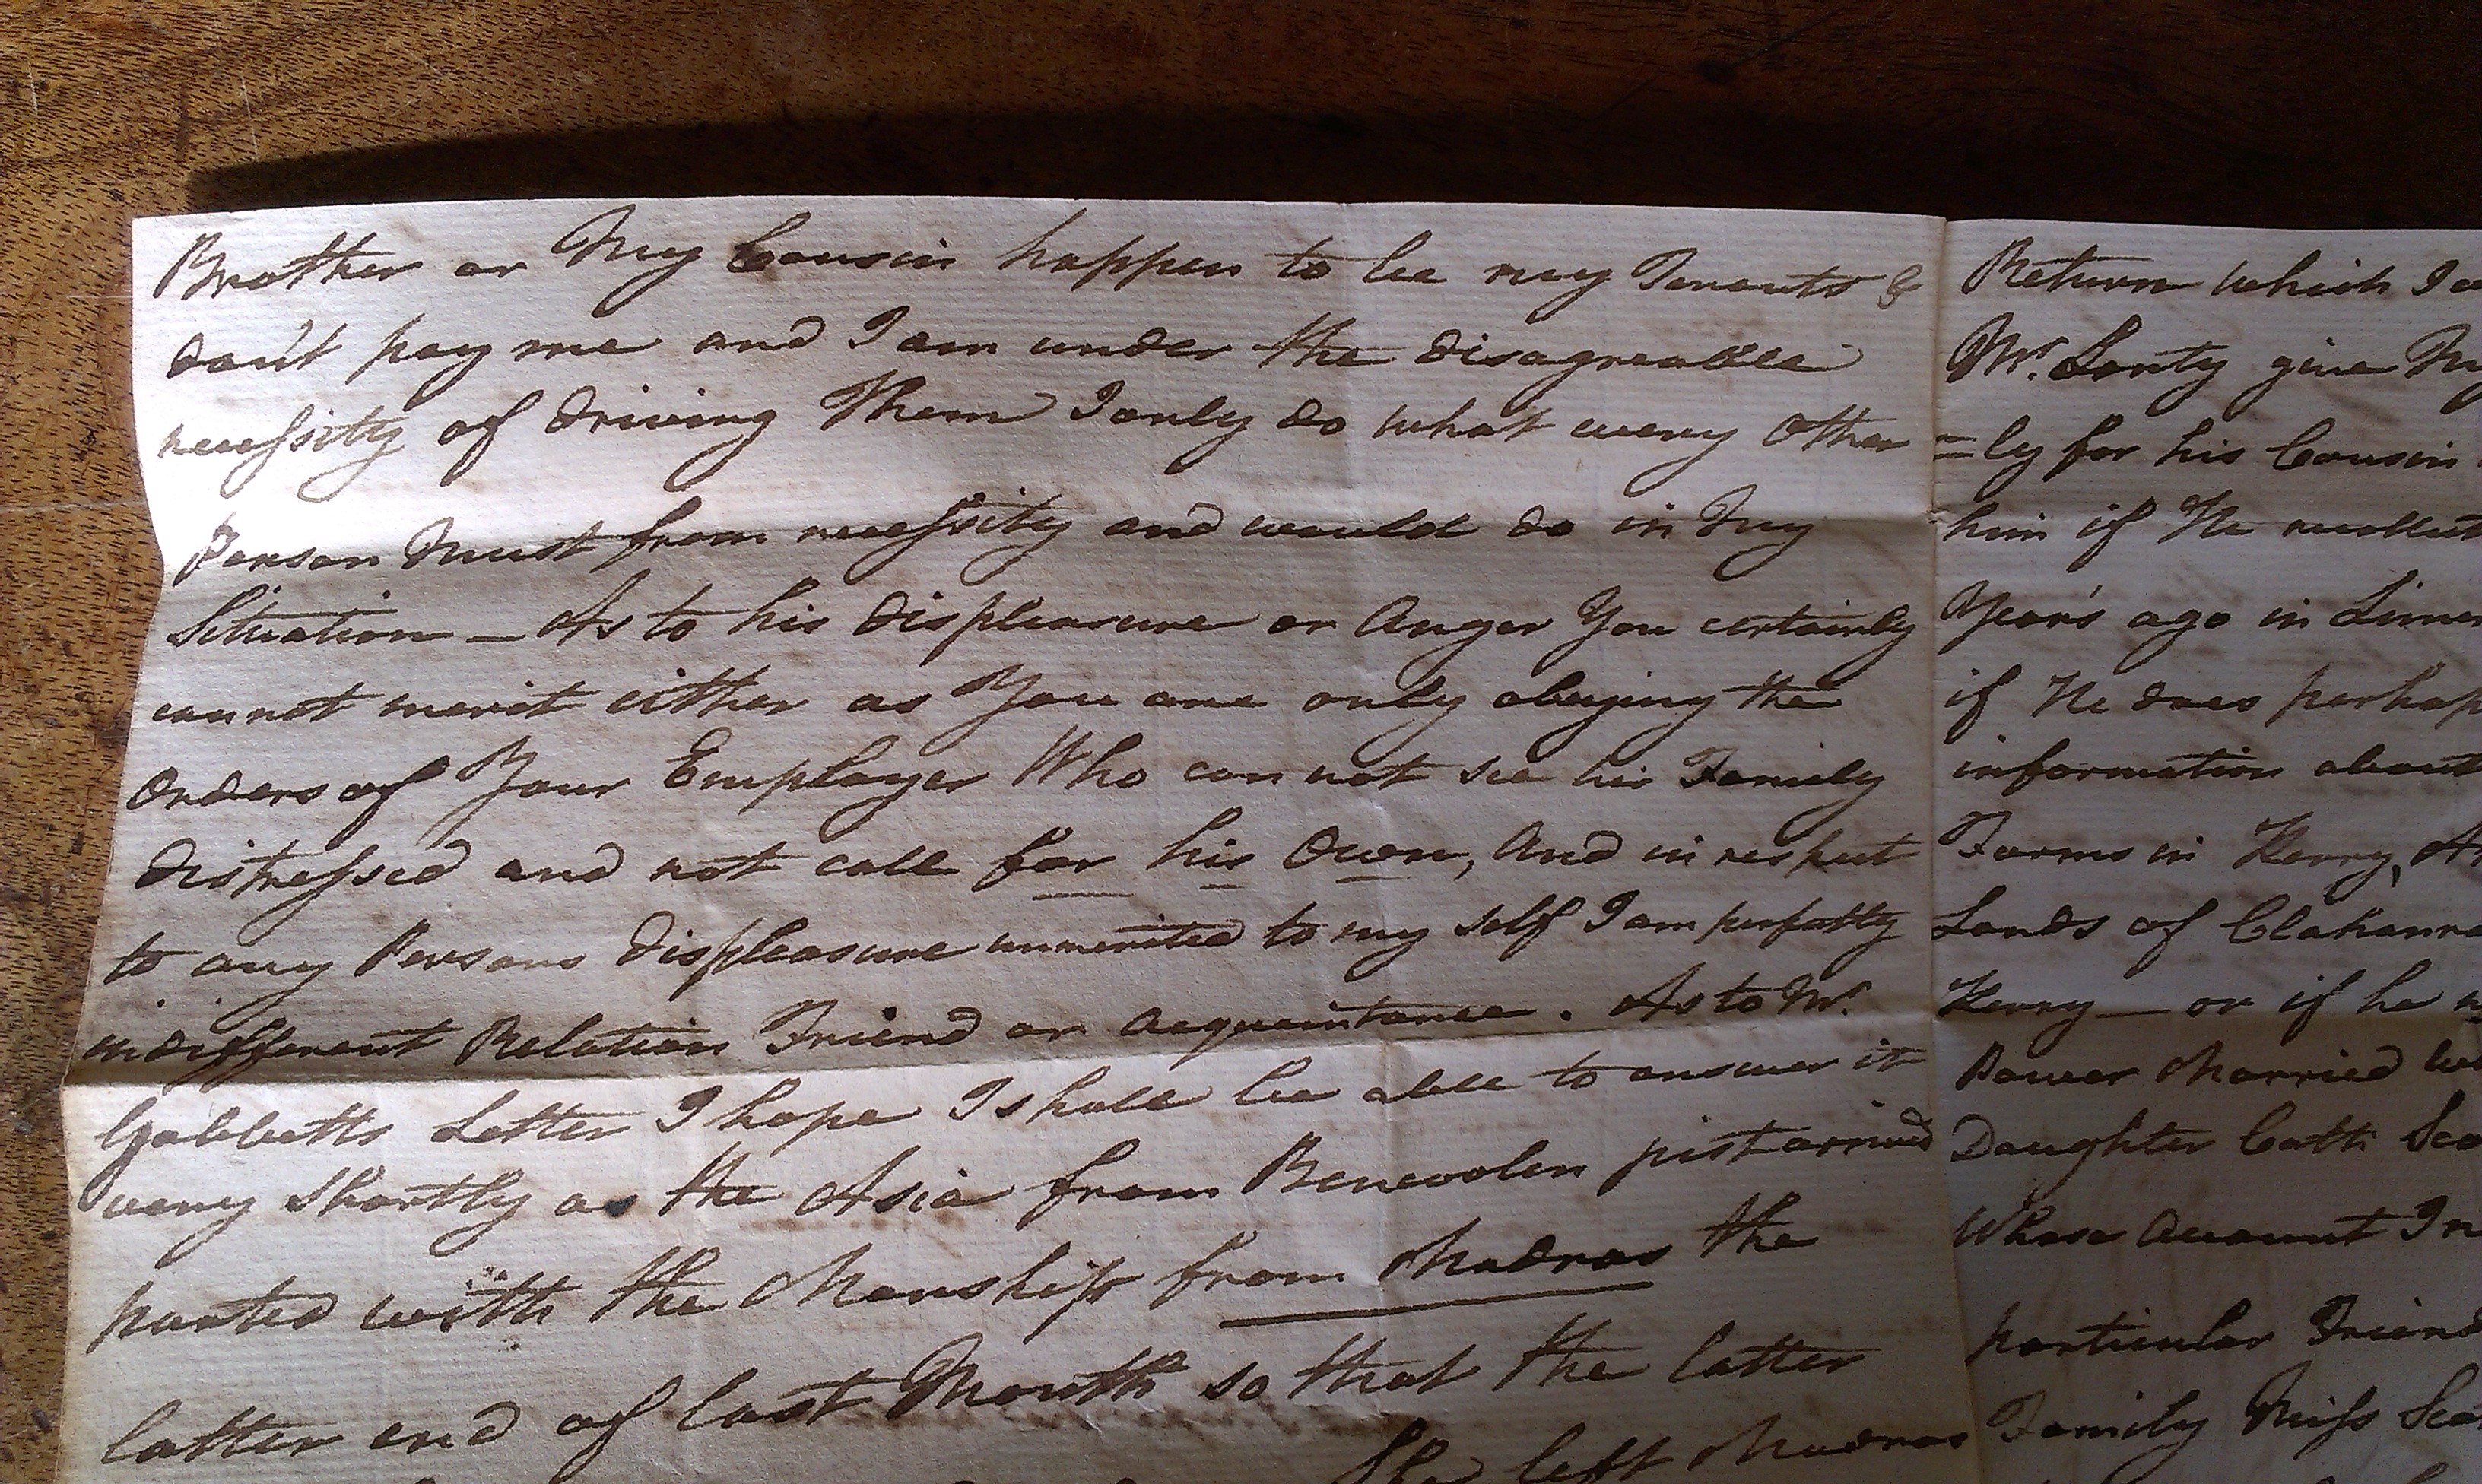 Brother or My Cousin happen to be my Tenants &
don't pay me and I am under the disagreable
necessity of driving Them I only do what every Other
Person Must from necessity and would do in My
Situation — As to his displeasure or Anger You certainly
cannot merit either as You are only obeying the
Orders of Your Employer Who can not see his Family
distressed and not call for his Owen, And in respect
to any Persons displeasure unmerited to my self I am perfectly
indifferent Relation Friend or Acquaintance. As to Mr.
Gabbetts Letter I hope I shall be able to answer it
very shortly as the Asia from Bencoolen just arrived
parted with the Manship from Madras the
latter end of last Month so that the latter
She left Madras
Return which I
Mr. Lonty give My
=ly for his Cousin
him if He recollect
Years ago in Limer
if He does perhap
information about
Farms in Kerry,
Lands of Clahanna
Kerry — or if he
Power Married
Daughter Cath Sca
Whose Account I
particular Friend
Family Miss Sca